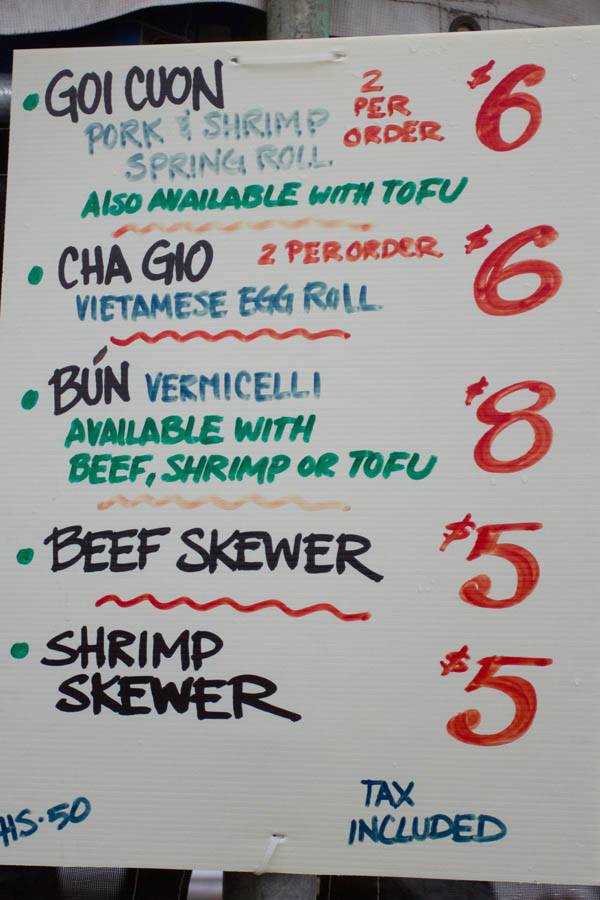 GOI CUON
2 PER ORDER
$6
PORK & SHRIMP
SPRING ROLL
ALSO AVAILABLE WITH TOFU
CHA GIO
2 PER ORDER
$6
VIETAMESE EGG ROLL
BÚN VERMICELLI
$8
AVAILABLE WITH
BEEF, SHRIMP OR TOFU
BEEF SKEWER
$5
SHRIMP
SKEWER
$5
HS-50
TAX
INCLUDED